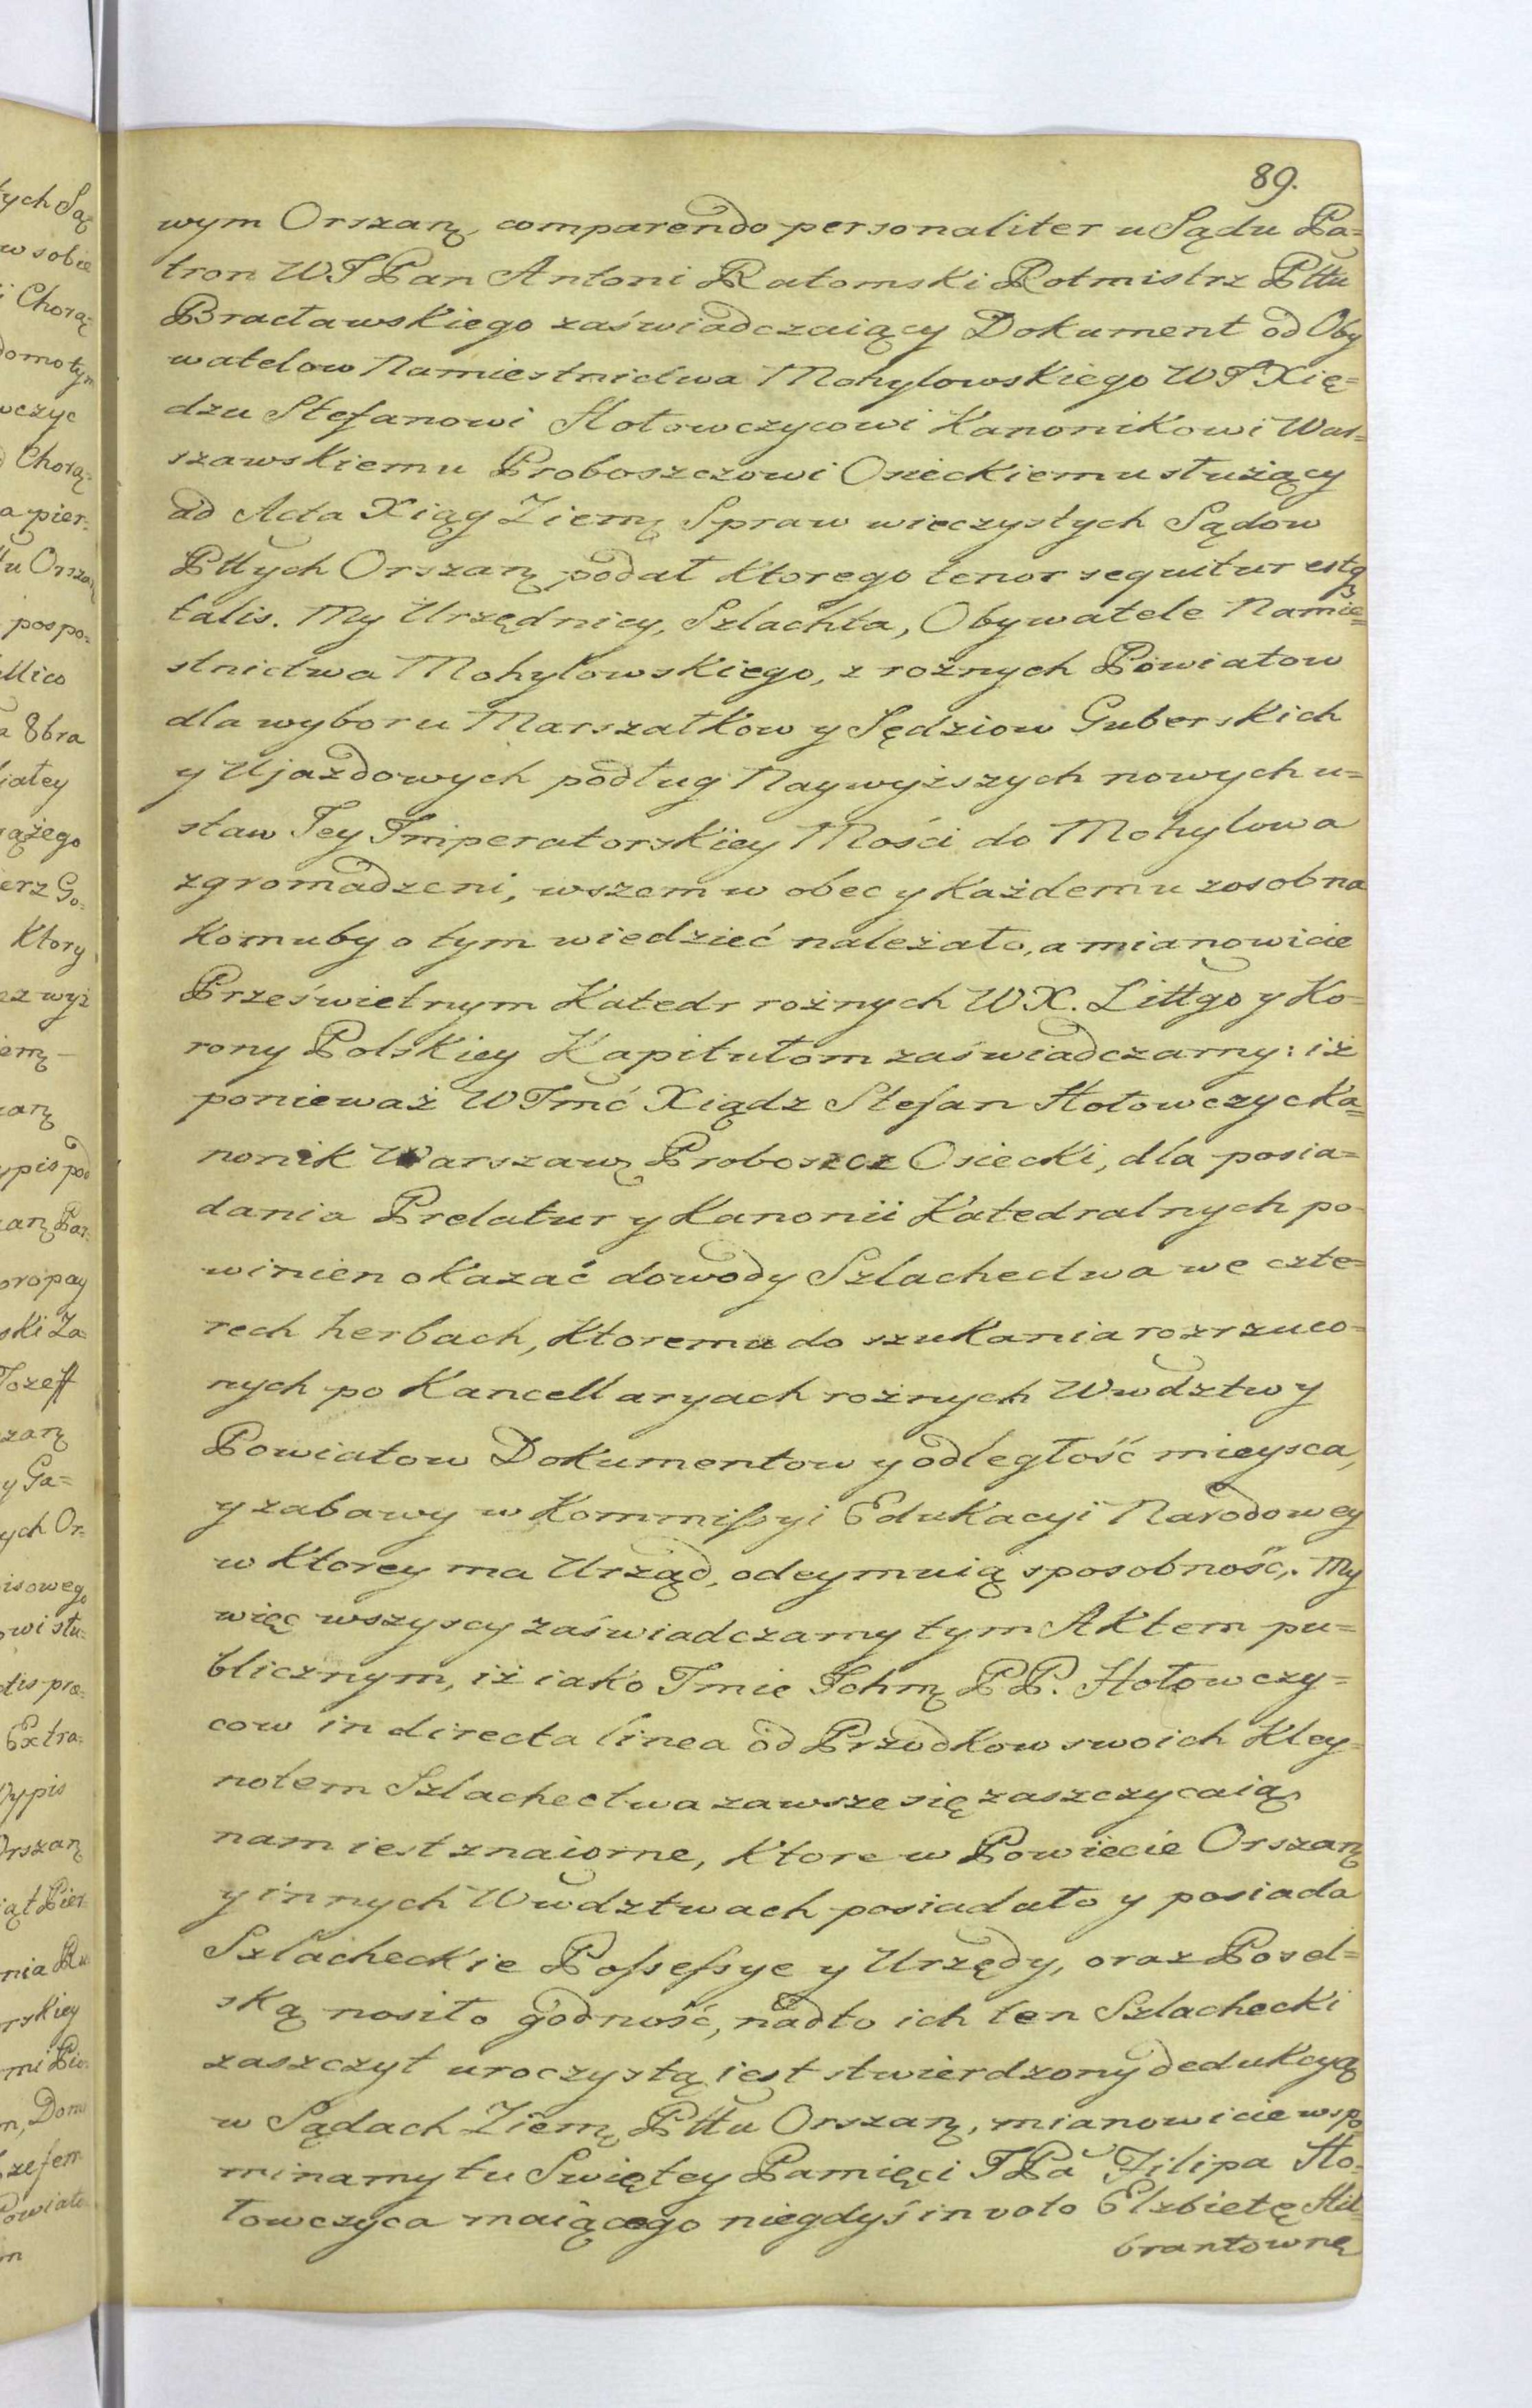 89.
wym Orszań, comparendo personaliter u Sądu Pa=
tron WJPan Antoni Ratomski Rotmistrz Pttu
Bracławskiego zaświadczaiący Dokument od Oby
watelow Namiestnictwa Mohylowskiego WJXię=
dzu Stefanowi Hołowczycowi Kanonikowi War=
szawskiemu Proboszczowi Osieckiemu służący
ad Acta Xiąg Ziemʒ Spraw wieczystych Sądow
Pttych Orszanʒ podał ktorego tenor sequitur estqʒ
talis. My Urzędnicy, Szlachta, Obywatele Namie=
stnictwa Mohylowskiego, z rożnych Powiatow
dla wyboru Marszałkow y Sędziow Guberskich
y Ujazdowych podług Naywyższych nowych u=
staw Jey Imperatorskiey Mości do Mohylowa
zgromadzeni, wszem w obec y każdemu zosobna
komuby o tym wiedzieć należało, a mianowicie
Prześwietnym Katedr rożnych WX. Littgo y Ko-
rony Polskiey Kapitułom zaświadczamy: iż
ponieważ WJmć Xiądz Stefan Hołowczyc Ka=
nonik Warszawʒ Proboszcz Osiecki, dla posia=
dania Prelatur y Kanonii Katedralnych po-
winien okazać dowody Szlachectwa we czte=
rech herbach, ktoremu do szukania rozrzuco-
nych po Kancellaryach rożnych Wwdztw y
Powiatow Dokumentow y odległość mieysca,
y zabawy w Kommiſsyi Edukacyi Narodowey
w ktorey ma Urząd, odeymuią sposobność,. My
więc wszyscy zaświadczamy tym Aktem pu=
blicznym, iż iako Imie Ichmʒ PP. Hołowczy=
cow in directa linea od Przodkow swoich Kley=
notem Szlachectwa zawsze się zaszczycaią
nam iest znaiome, ktore w Powiecie Orszanʒ
y innych Wwdztwach posiadało y posiada
Szlacheckie Poſseſsye y Urzędy, oraz Posel=
ską nosiło godność, nadto ich ten Szlachecki
zaszczyt uroczystą iest stwierdzony dedukcyą
w Sądach Ziemʒ Pttu Orszanʒ, mianowicie wspo
minamy tu Swiętey Pamięci JPa Filipa Ho-
łowczyca maiącego niegdyś in voto Elzbietę Hil=
brantownę